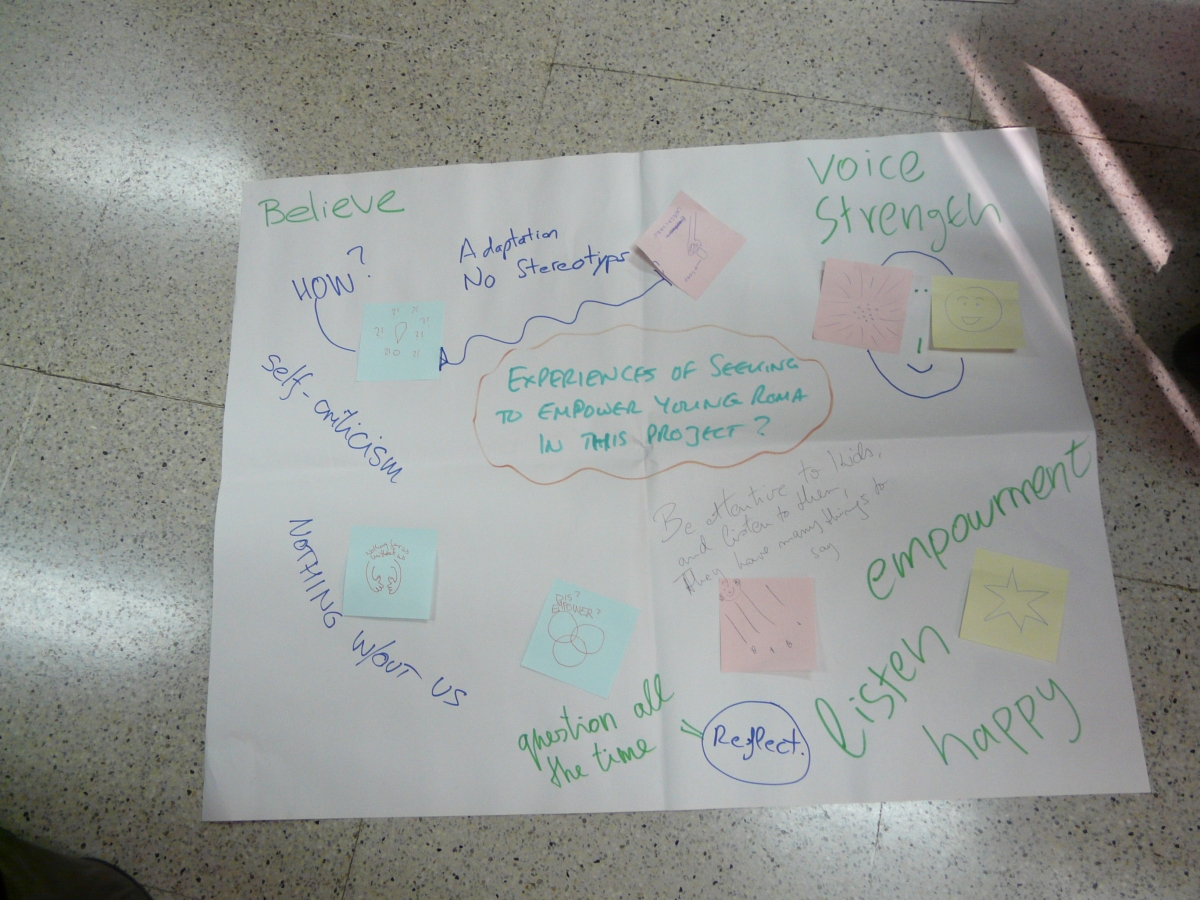 Believe
VOICE
Strength
HOW?
Adaptation
No Stereotyps
EXPERIENCES OF SEEKING
TO EMPOWER YOUNG ROMA
IN THIS PROJECT?
self-criticism
Be attentive to kids,
and listen to them,
They have many things to
say
empowrment
NOTHING W/OUT US
DIS?
EMPOWER?
listen
happy
question all
the time
Reflect.